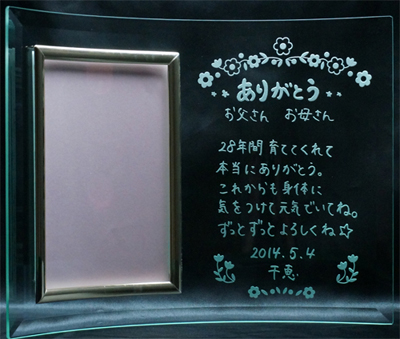 ありがとう
お父さん お母さん
28年間育ててくれて
本当にありがとう。
これからも身体に
気をつけて元気でいてね。
ずっとずっとよろしくね☆
2014.5.4
千恵